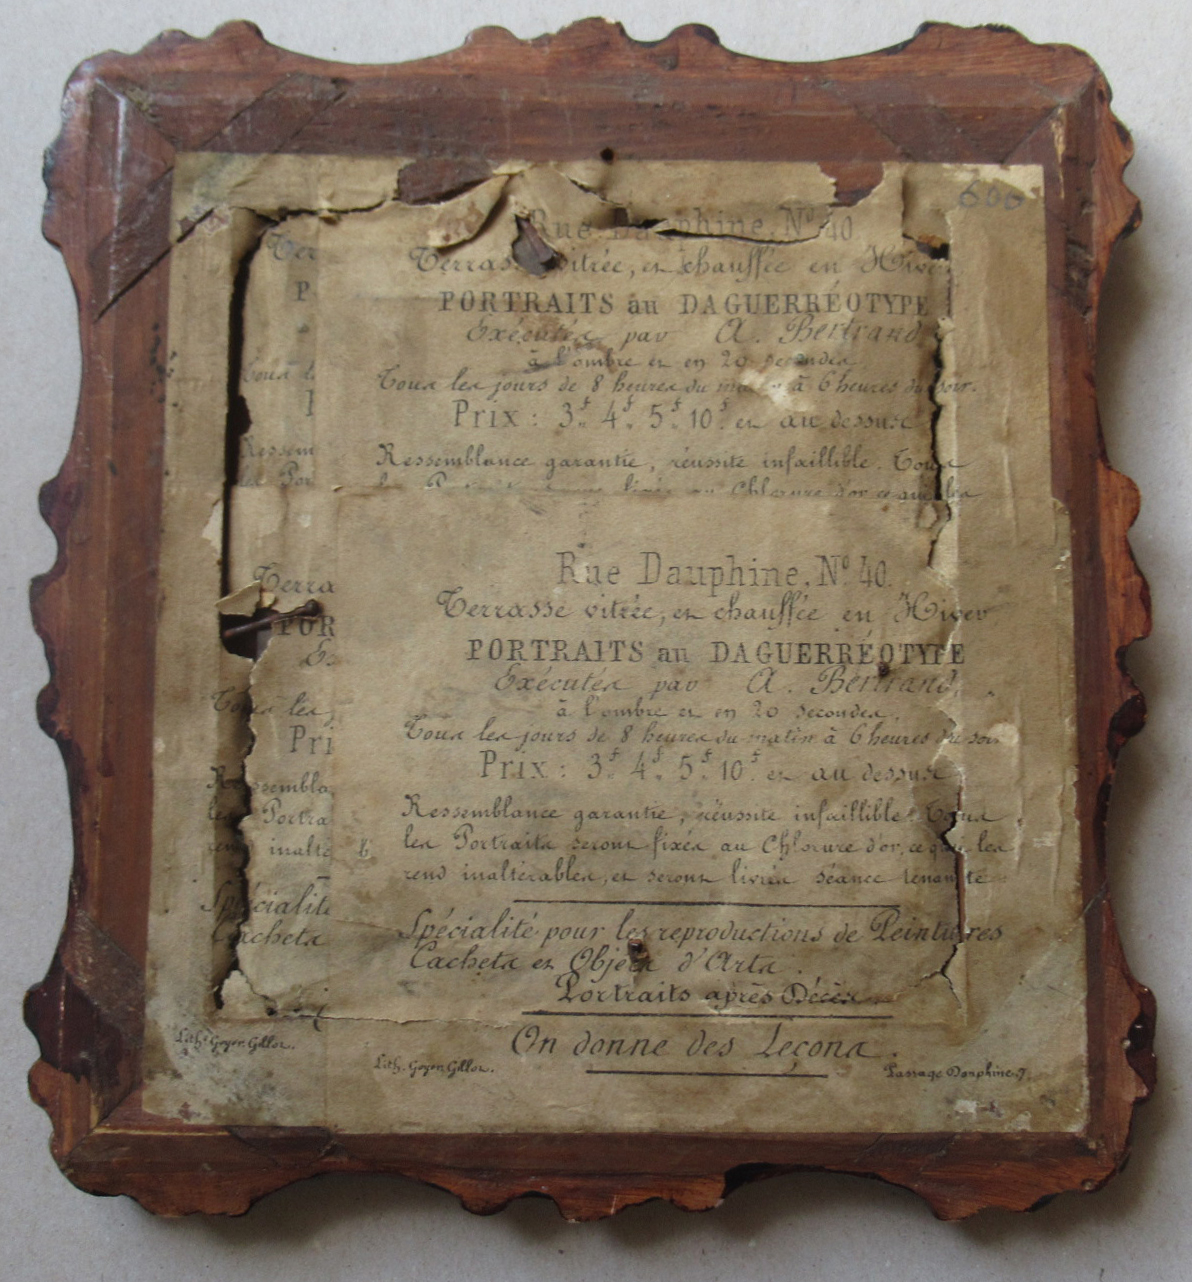 600
Rue Dauphine, Nº 40
Terrasse vitrée, et chauffée en Hiver
PORTRAITS au DAGUERRÉOTYPE
Exécutés par A. Bertrand
à l'ombre et en 20 secondes
Tous les jours de 8 heures du matin à 6 heures du soir.
Prix : 3f 4f 5f 10f et au dessus
Ressemblance garantie, réussite infaillible. Tous
les Portraits seront fixés au Chlorure d'or, ce que les
Terr
P
Tous l
Ressem
les Por
Rue Dauphine, Nº 40.
Terrasse vitrée, et chauffée en Hiver
PORTRAITS au DAGUERRÉOTYPE
Exécutés par A. Bertrand,
à l'ombre et en 20 secondes,
Tous les jours de 8 heures du matin à 6 heures du soir
Prix : 3f 4f 5f 10f et au dessus
Ressemblance garantie, réussite infaillible. Tous
les Portraits seront fixés au Chlorure d'or, ce qui les
rend inaltérables, et seront livrés séance tenante
Spécialité pour les reproductions de Peintures
Cachets et Objets d'Arts.
Portraits après Décès.
On donne des Leçons.
Lith. Goyer Gillot.
Passage Dauphine, 7.
Terra
POR
Ex
Tous les j
Pri
Ressembla
les Portra
rend inalté
Spécialité
Cachets
Lith. Goyer Gillot.